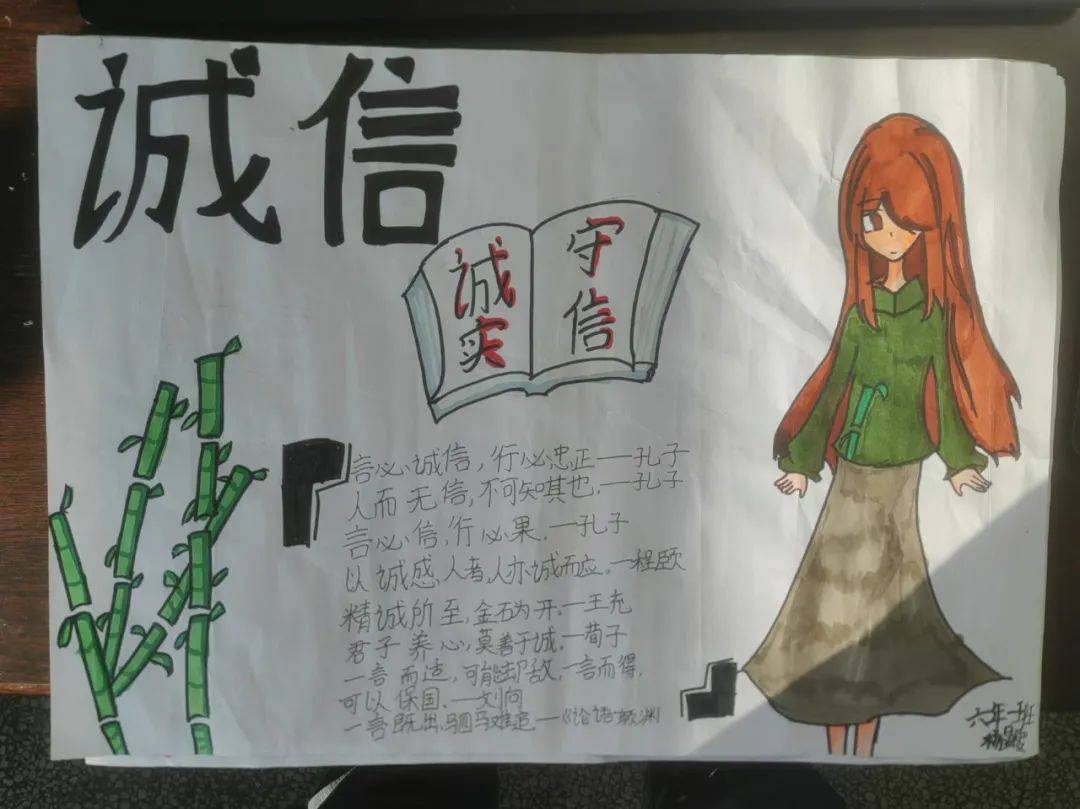 诚信
诚实
守信
言必诚信,行必忠正——孔子
人而无信,不可知其也.—孔子
言必信,行必果.—孔子
以诚感人者,人亦诚而应.—程颐
精诚所至,金石为开.—王充
君子养心,莫善于诚.—荀子
一言而适,可能却敌,一言而得,
可以保国.—刘向
一言既出,驷马难追—《论语·颜渊》
六年一班
杨